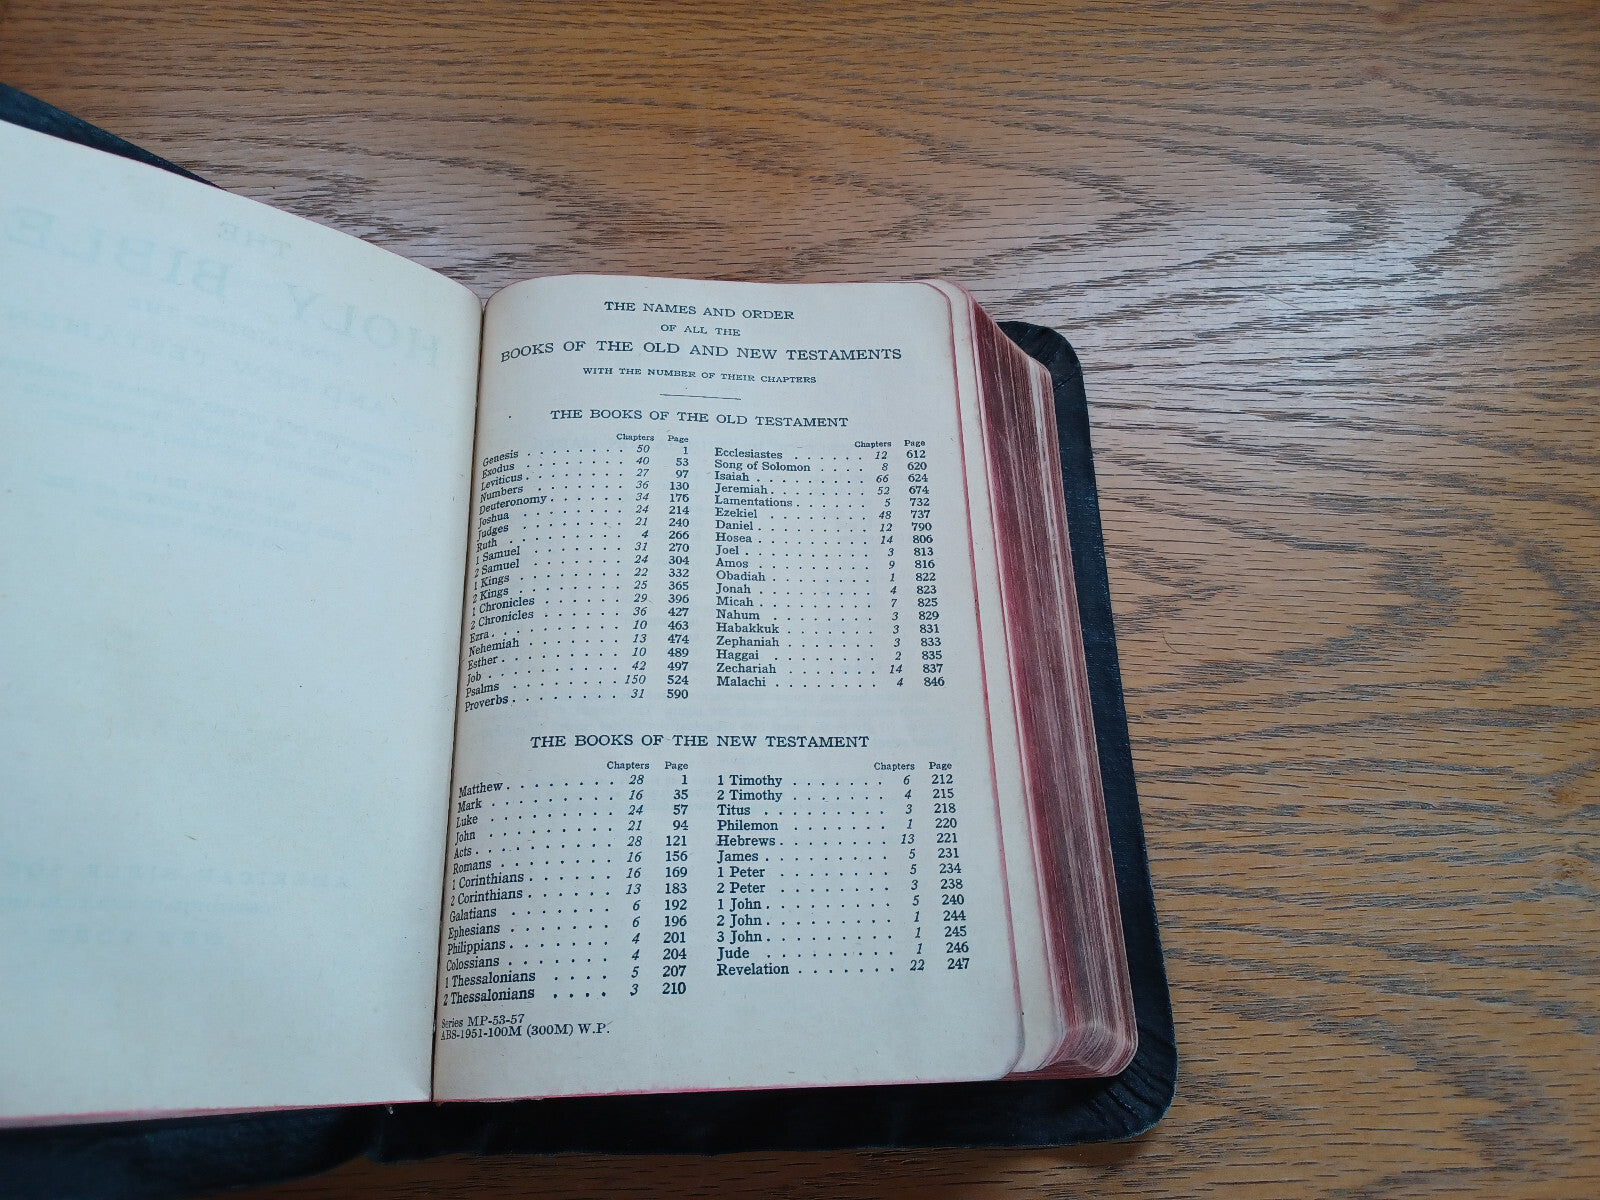 THE
HOLY BIBLE
THE NAMES AND ORDER
OF ALL THE
BOOKS OF THE OLD AND NEW TESTAMENTS
WITH THE NUMBER OF THEIR CHAPTERS
THE BOOKS OF THE OLD TESTAMENT
Chapters Page
Genesis . . . . . . . . 50 1
Exodus . . . . . . . . 40 53
Leviticus . . . . . . . . 27 97
Numbers . . . . . . . . 36 130
Deuteronomy . . . . . . 34 176
Joshua . . . . . . . . 24 214
Judges . . . . . . . . 21 240
Ruth . . . . . . . . 4 266
1 Samuel . . . . . . . 31 270
2 Samuel . . . . . . . 24 304
1 Kings . . . . . . . . 22 332
2 Kings . . . . . . . . 25 365
1 Chronicles . . . . . . 29 396
2 Chronicles . . . . . . 36 427
Ezra . . . . . . . . . 10 463
Nehemiah . . . . . . . 13 474
Esther . . . . . . . . 10 489
Job . . . . . . . . . 42 497
Psalms . . . . . . . . 150 524
Proverbs . . . . . . . . 31 590
Chapters Page
Ecclesiastes . . . . . . 12 612
Song of Solomon . . . . 8 620
Isaiah . . . . . . . . . 66 624
Jeremiah . . . . . . . . 52 674
Lamentations . . . . . . 5 732
Ezekiel . . . . . . . . 48 737
Daniel . . . . . . . . . 12 790
Hosea . . . . . . . . . 14 806
Joel . . . . . . . . . . 3 813
Amos . . . . . . . . . 9 816
Obadiah . . . . . . . . 1 822
Jonah . . . . . . . . . 4 823
Micah . . . . . . . . . 7 825
Nahum . . . . . . . . 3 829
Habakkuk . . . . . . . 3 831
Zephaniah . . . . . . . 3 833
Haggai . . . . . . . . 2 835
Zechariah . . . . . . . 14 837
Malachi . . . . . . . . 4 846
THE BOOKS OF THE NEW TESTAMENT
Chapters Page
Matthew . . . . . . . . 28 1
Mark . . . . . . . . . 16 35
Luke . . . . . . . . . 24 57
John . . . . . . . . . 21 94
Acts . . . . . . . . . . 28 121
Romans . . . . . . . . 16 156
1 Corinthians . . . . . . 16 169
2 Corinthians . . . . . . 13 183
Galatians . . . . . . . 6 192
Ephesians . . . . . . . 6 196
Philippians . . . . . . . 4 201
Colossians . . . . . . . 4 204
1 Thessalonians . . . . 5 207
2 Thessalonians . . . . 3 210
Chapters Page
1 Timothy . . . . . . . 6 212
2 Timothy . . . . . . . 4 215
Titus . . . . . . . . . 3 218
Philemon . . . . . . . 1 220
Hebrews . . . . . . . . 13 221
James . . . . . . . . . 5 231
1 Peter . . . . . . . . 5 234
2 Peter . . . . . . . . 3 238
1 John . . . . . . . . . 5 240
2 John . . . . . . . . . 1 244
3 John . . . . . . . . . 1 245
Jude . . . . . . . . . 1 246
Revelation . . . . . . . 22 247
Series MP-53-57
ABS-1951-100M (300M) W.P.